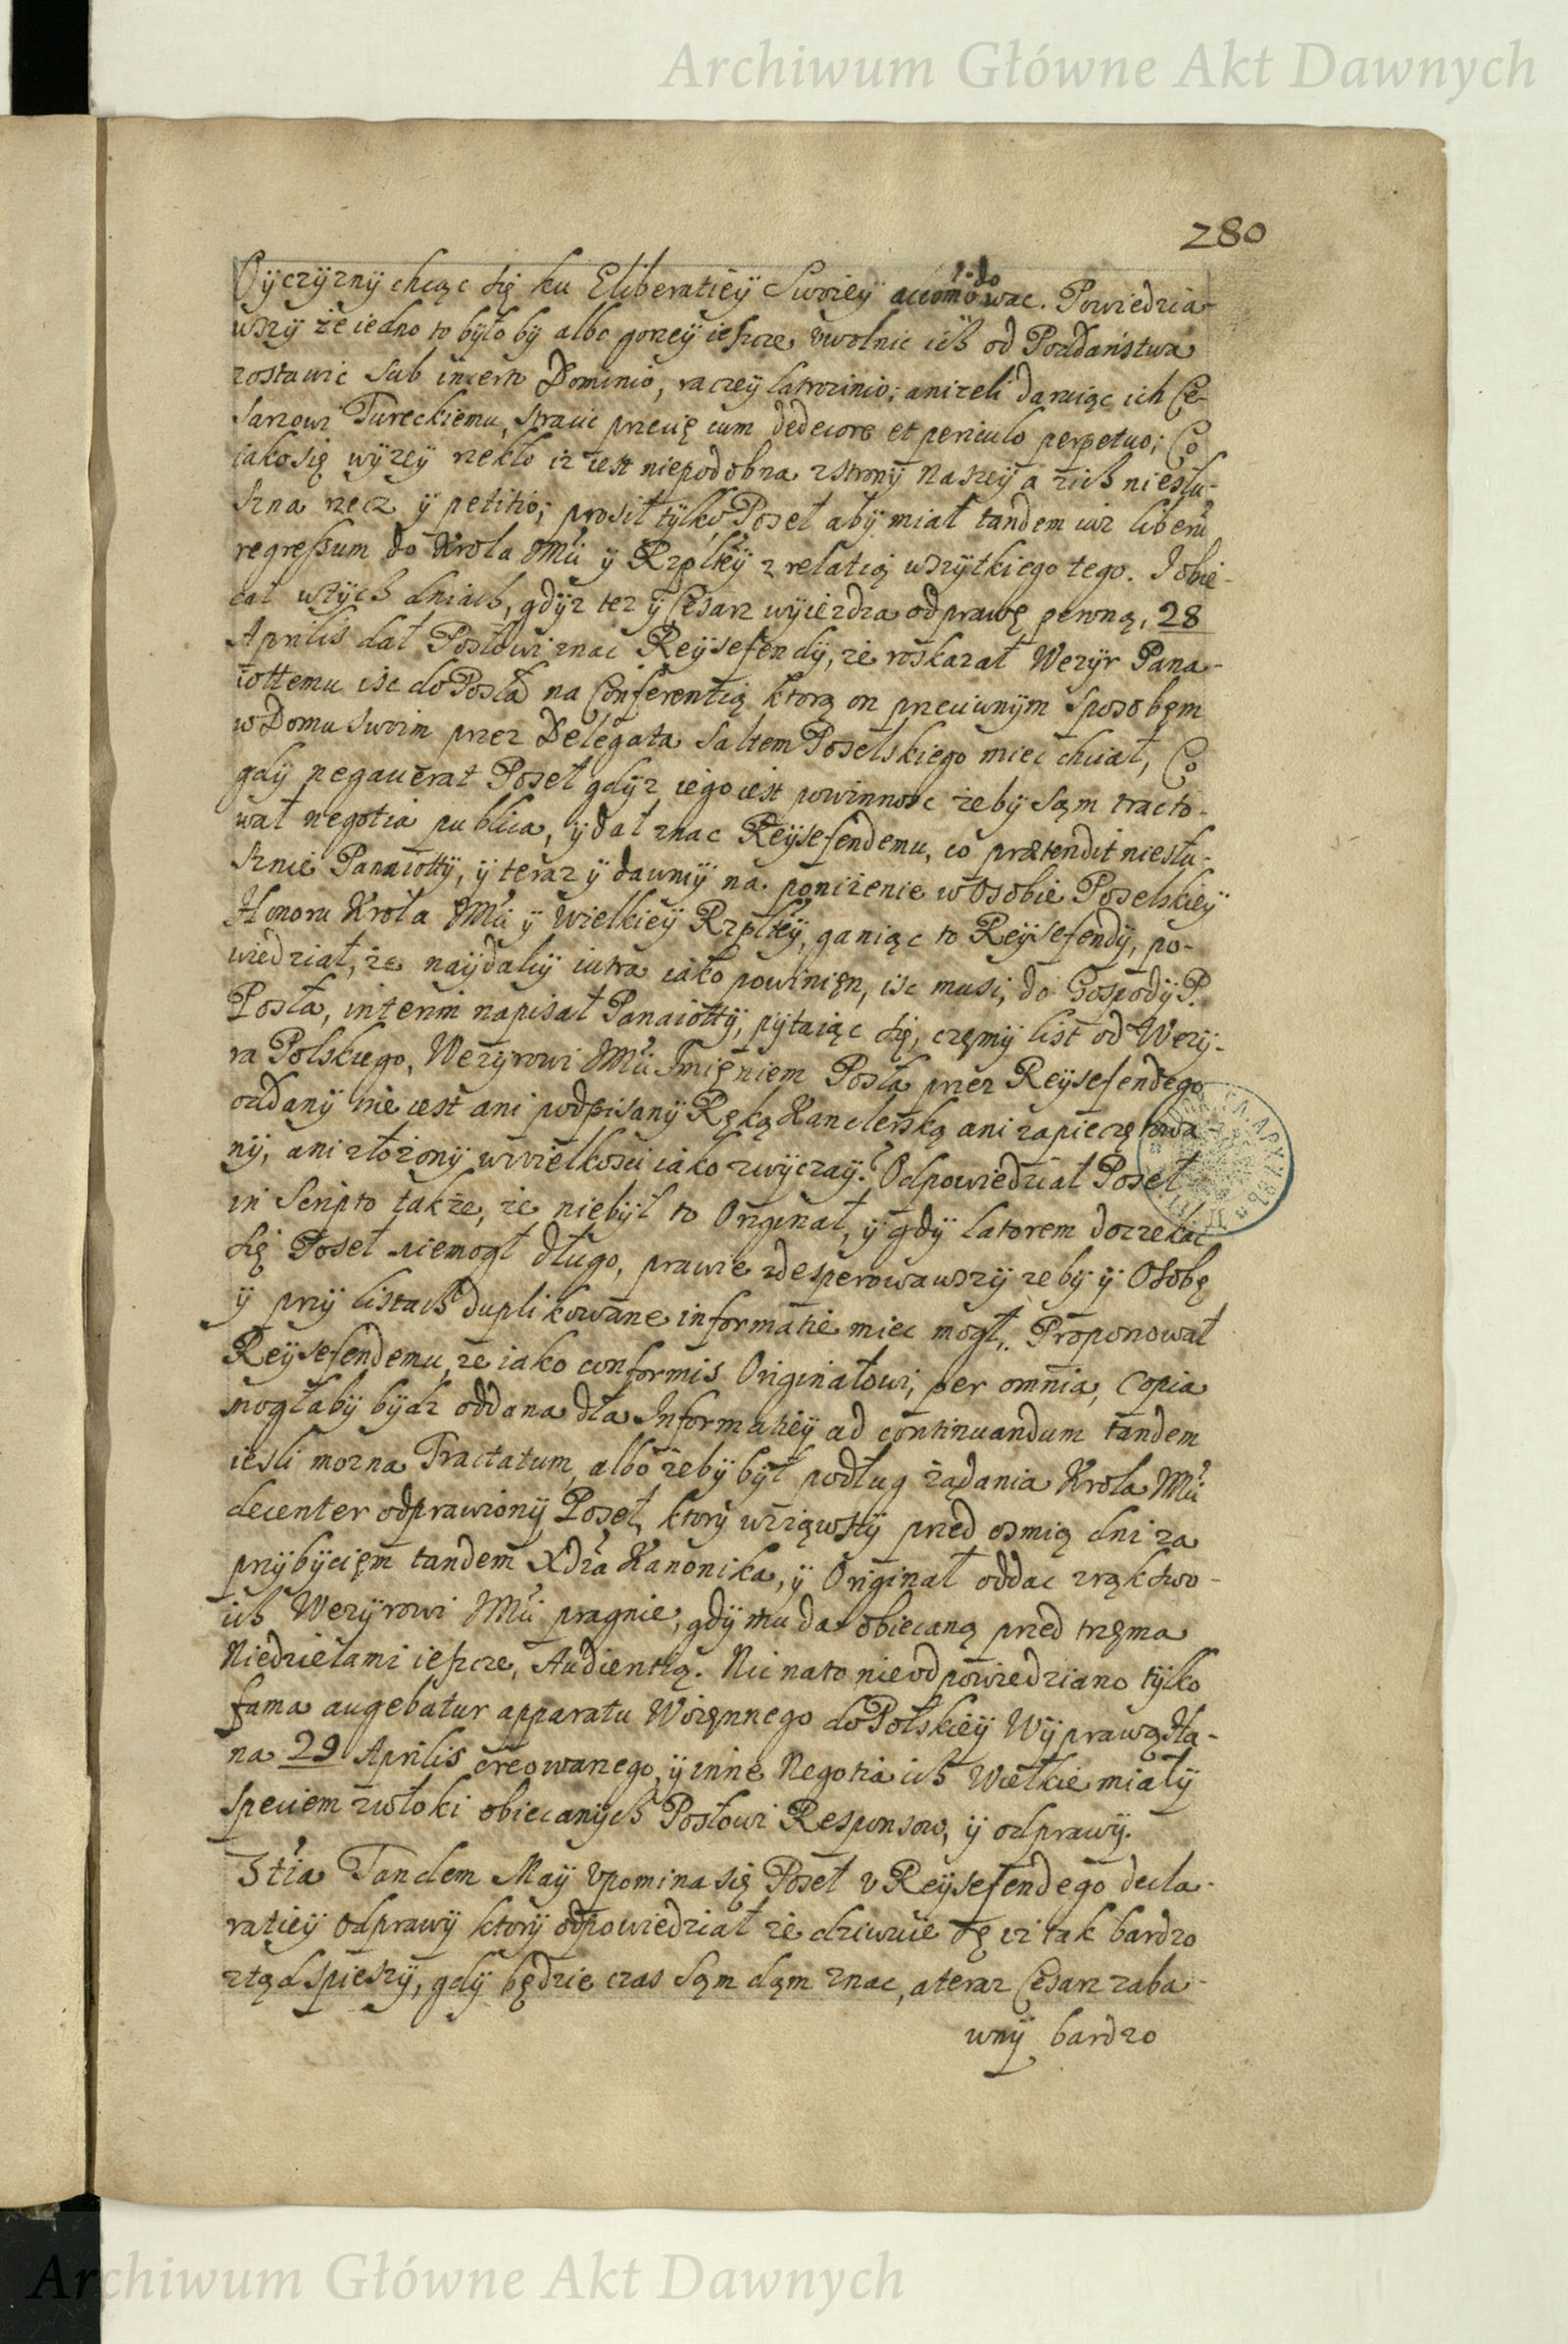 Archiwum Główne Akt Dawnych
280
Oÿczÿznÿ chcąc się ku Eliberatieÿ Swoieÿ accomodowac. Powiedzia-
wszÿ że iedno to bÿło bÿ albo gorzeÿ ieszcze, uwolnic ich od Poddaństwa
zostawic sub incerto Dominio, raczeÿ latrocinio; anizeli daruiąc ich Ce-
sarzowi Tureckiemu, stracic przecię cum dedecore et periculo perpetuo; Co
iako się wÿzeÿ rzekło iz iest niepodobna z stronÿ naszeÿ a z ich niesłu-
szna rzecz ÿ petitio; prosił tÿlko Poseł abÿ miał tandem iuz liberũ
regressum do Krola JMci ÿ Rzpltеÿ z relatią wszÿtkiego tego. I obie-
cał w tÿch dniach, gdÿz tez ÿ Cesarz wÿiezdza odprawę pewną, 28
Aprilis dał Posłowi znac Reÿsefendÿ, że roskazał Wezÿr Pana-
iottemu isc do Posła na Conferentią ktorą on przeciwnÿm sposobęm
w Domu swoim przez Delegata saltem Poselskiego miec chciał, Co
gdÿ negauerat Poseł gdÿz iego iest powinnosc żebÿ sąm tracto-
wał negotia publica, ÿ dał znac Reÿsefendemu, co prætendit niesłu-
sznie Panaiottÿ, ÿ teraz ÿ dawniÿ na poniżenie w Osobie Poselskieÿ
Honoru Krola JMci ÿ Wielkieÿ Rzplteÿ, ganiąc to Reÿsefendÿ, po-
wiedział, że naÿdaliÿ iutra iako powinięn, isc musi, do Gospodÿ P.
Posła, interim napisał Panaiottÿ, pÿtaiąc się, częmÿ list od Wezÿ-
ra Polskiego, Wezyrowi JMci Imięniem Posła przez Reÿsefendego
oddanÿ nie iest ani podpisanÿ Ręką Kanclerską ani zapieczętowa
nÿ, ani złożonÿ w wielkosci iako zwÿczaÿ? Odpowiedział Poseł
in Scripto także, że niebÿł to Orÿginał, ÿ gdÿ latorem doczekac
się Poseł niemogł długo, prawie zdesperowawszÿ zebÿ ÿ Osobę
ÿ przÿ listach duplikowane informatie miec mogł, Proponował
Reÿsefendemu, ze iako conformis Originałowi, per omnia, Copia
mogłabÿ bÿdz oddana dla Informatieÿ ad continuandum tandem
iesli mozna Tractatum, albo żebÿ bÿł podług żądania Krola JMci
decenter odprawionÿ Poseł, ktorÿ wziąwszÿ przed osmią dni za
przÿbÿcięm tandem Xdza Kanonika, ÿ Originał oddac z rąk two-
ich Wezÿrowi JMci pragnie, gdÿ mu da obiecaną przed trzęma
Niedzielami ieszcze, Audientią. Nic na to nieodpowiedziano tÿlko
fama augebatur apparatu Woięnnego do Polskieÿ Wÿprawą Ha-
na 29 Aprilis creowanego, ÿ inne Negotia ich Wielkie miałÿ
speciem zwłoki obiecanÿch Posłowi Responsow, ÿ odprawÿ.
3tia Tandem Maÿ Upomina się Poseł u Reÿsefendego decla-
ratieÿ odprawÿ ktorÿ odpowiedział że dziwuie się iz tak bardzo
ztąd spieszÿ, gdÿ będzie czas sąm dąm znac, a teraz Cesarz zaba-
wnÿ bardzo
Archiwum Główne Akt Dawnych